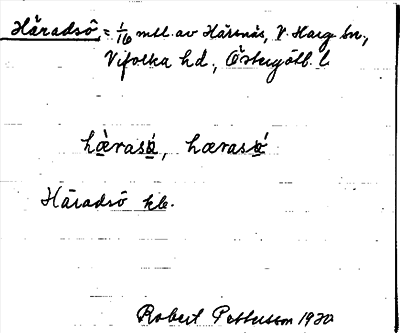 Häradsö = 1/16 mtl. av Härsnäs, V. Harg sn.,
Vifolka hd., Östergötl. l.
hæ̀rasö́, hærasö́
Häradsö kb.
Robert Pettersson 1930